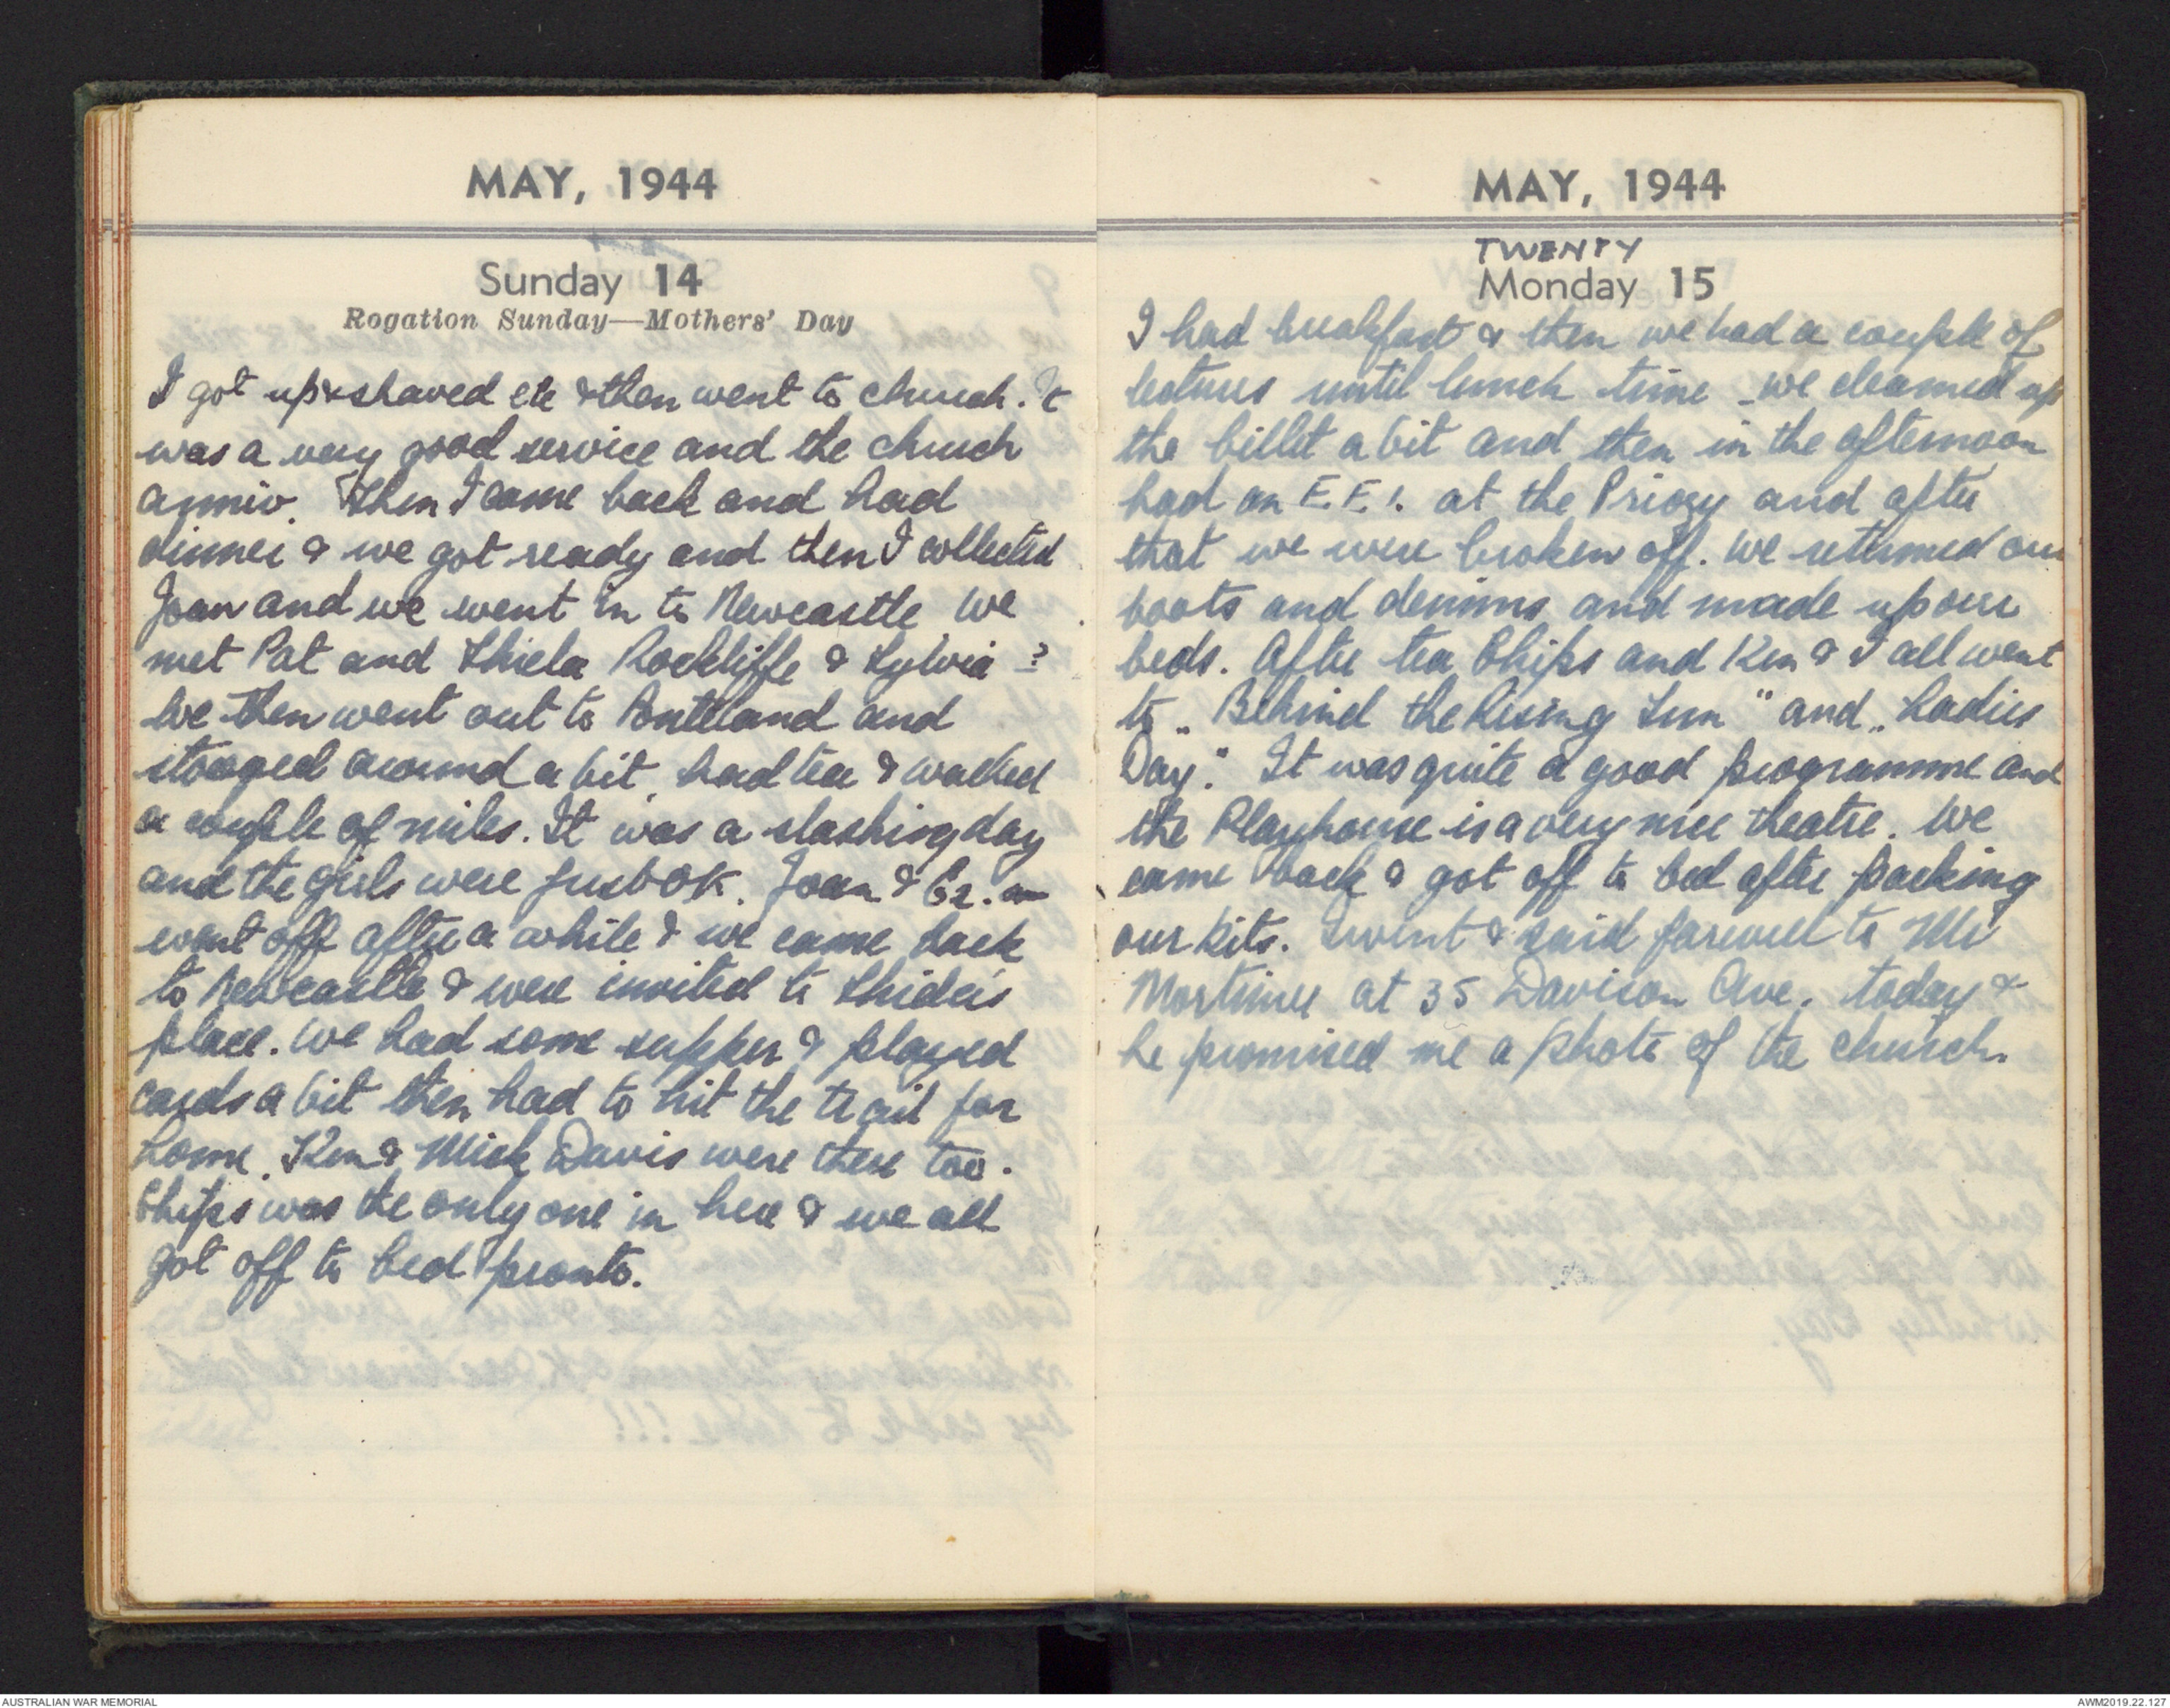 MAY, 1944
Sunday 14
Rogation Sunday—Mothers' Day
I got up & shaved etc & then went to church. It
was a very good service and the church
anniv. Then I came back and had
dinner & we got ready and then I collected
Joan and we went in to Newcastle We
met Pat and Shiela Rockliffe & Sylvia - ?
We then went out to Ponteland and
stooged around a bit, had tea & walked
a couple of miles. It was a slashing day
and the girls were just OK. Joan &
went off after a while & we came back
to Newcastle & were invited to Shiela's
place. We had some supper & played
cards a bit then had to hit the trail for
home. Ken & Mick Davis were there too.
Chips was the only one in here & we all
got off to bed pronto.
MAY, 1944
TWENTY
Monday 15
I had breakfast & then we had a couple of
lectures until lunch time - we cleaned up
the billet a bit and then in the afternoon
had an F.F.I. at the Priory and after
that we were broken off. We returned our
boots and denims and made up our
beds. After tea Chips and Ken & I all went
to "Behind the Rising Sun" and "Ladies
Day." It was quite a good programme and
the Playhouse is a very nice theatre. We
came back & got off to bed after packing
our kits. I went & said farewell to Mr
Mortimer at 35 Davison Ave. today &
he promised me a photo of the church.
AUSTRALIAN WAR MEMORIAL
AWM2019.22.127